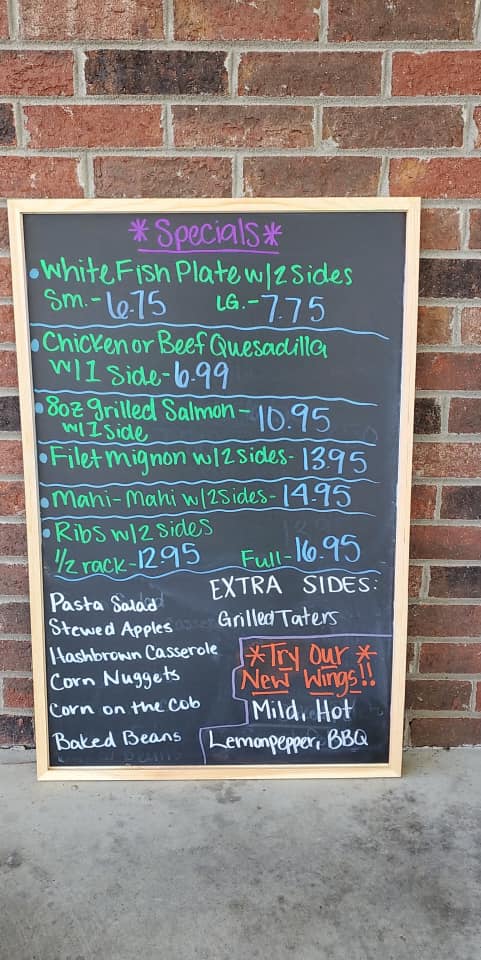 *Specials*
• White Fish Plate w/2 Sides
Sm.-6.75 LG.-7.75
• Chicken or Beef Quesadilla
w/1 Side-6.99
• 8oz grilled Salmon- 10.95
w/1 Side
• Filet mignon w/2 sides- 13.95
• Mahi-Mahi w/2 Sides- 14.95
• Ribs w/2 sides
1/2 rack-12.95 Full-16.95
EXTRA SIDES:
Pasta Salad
Grilled Taters
Stewed Apples
Hashbrown Casserole
Corn Nuggets
Corn on the Cob
Baked Beans
*Try Our *
New Wings!!
Mild, Hot
Lemonpepper, BBQ